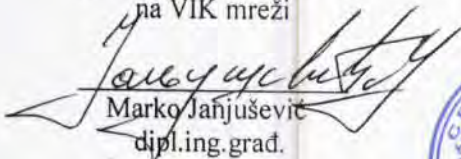 na VIK mreži
Marko Janjušević
dipl.ing.građ.